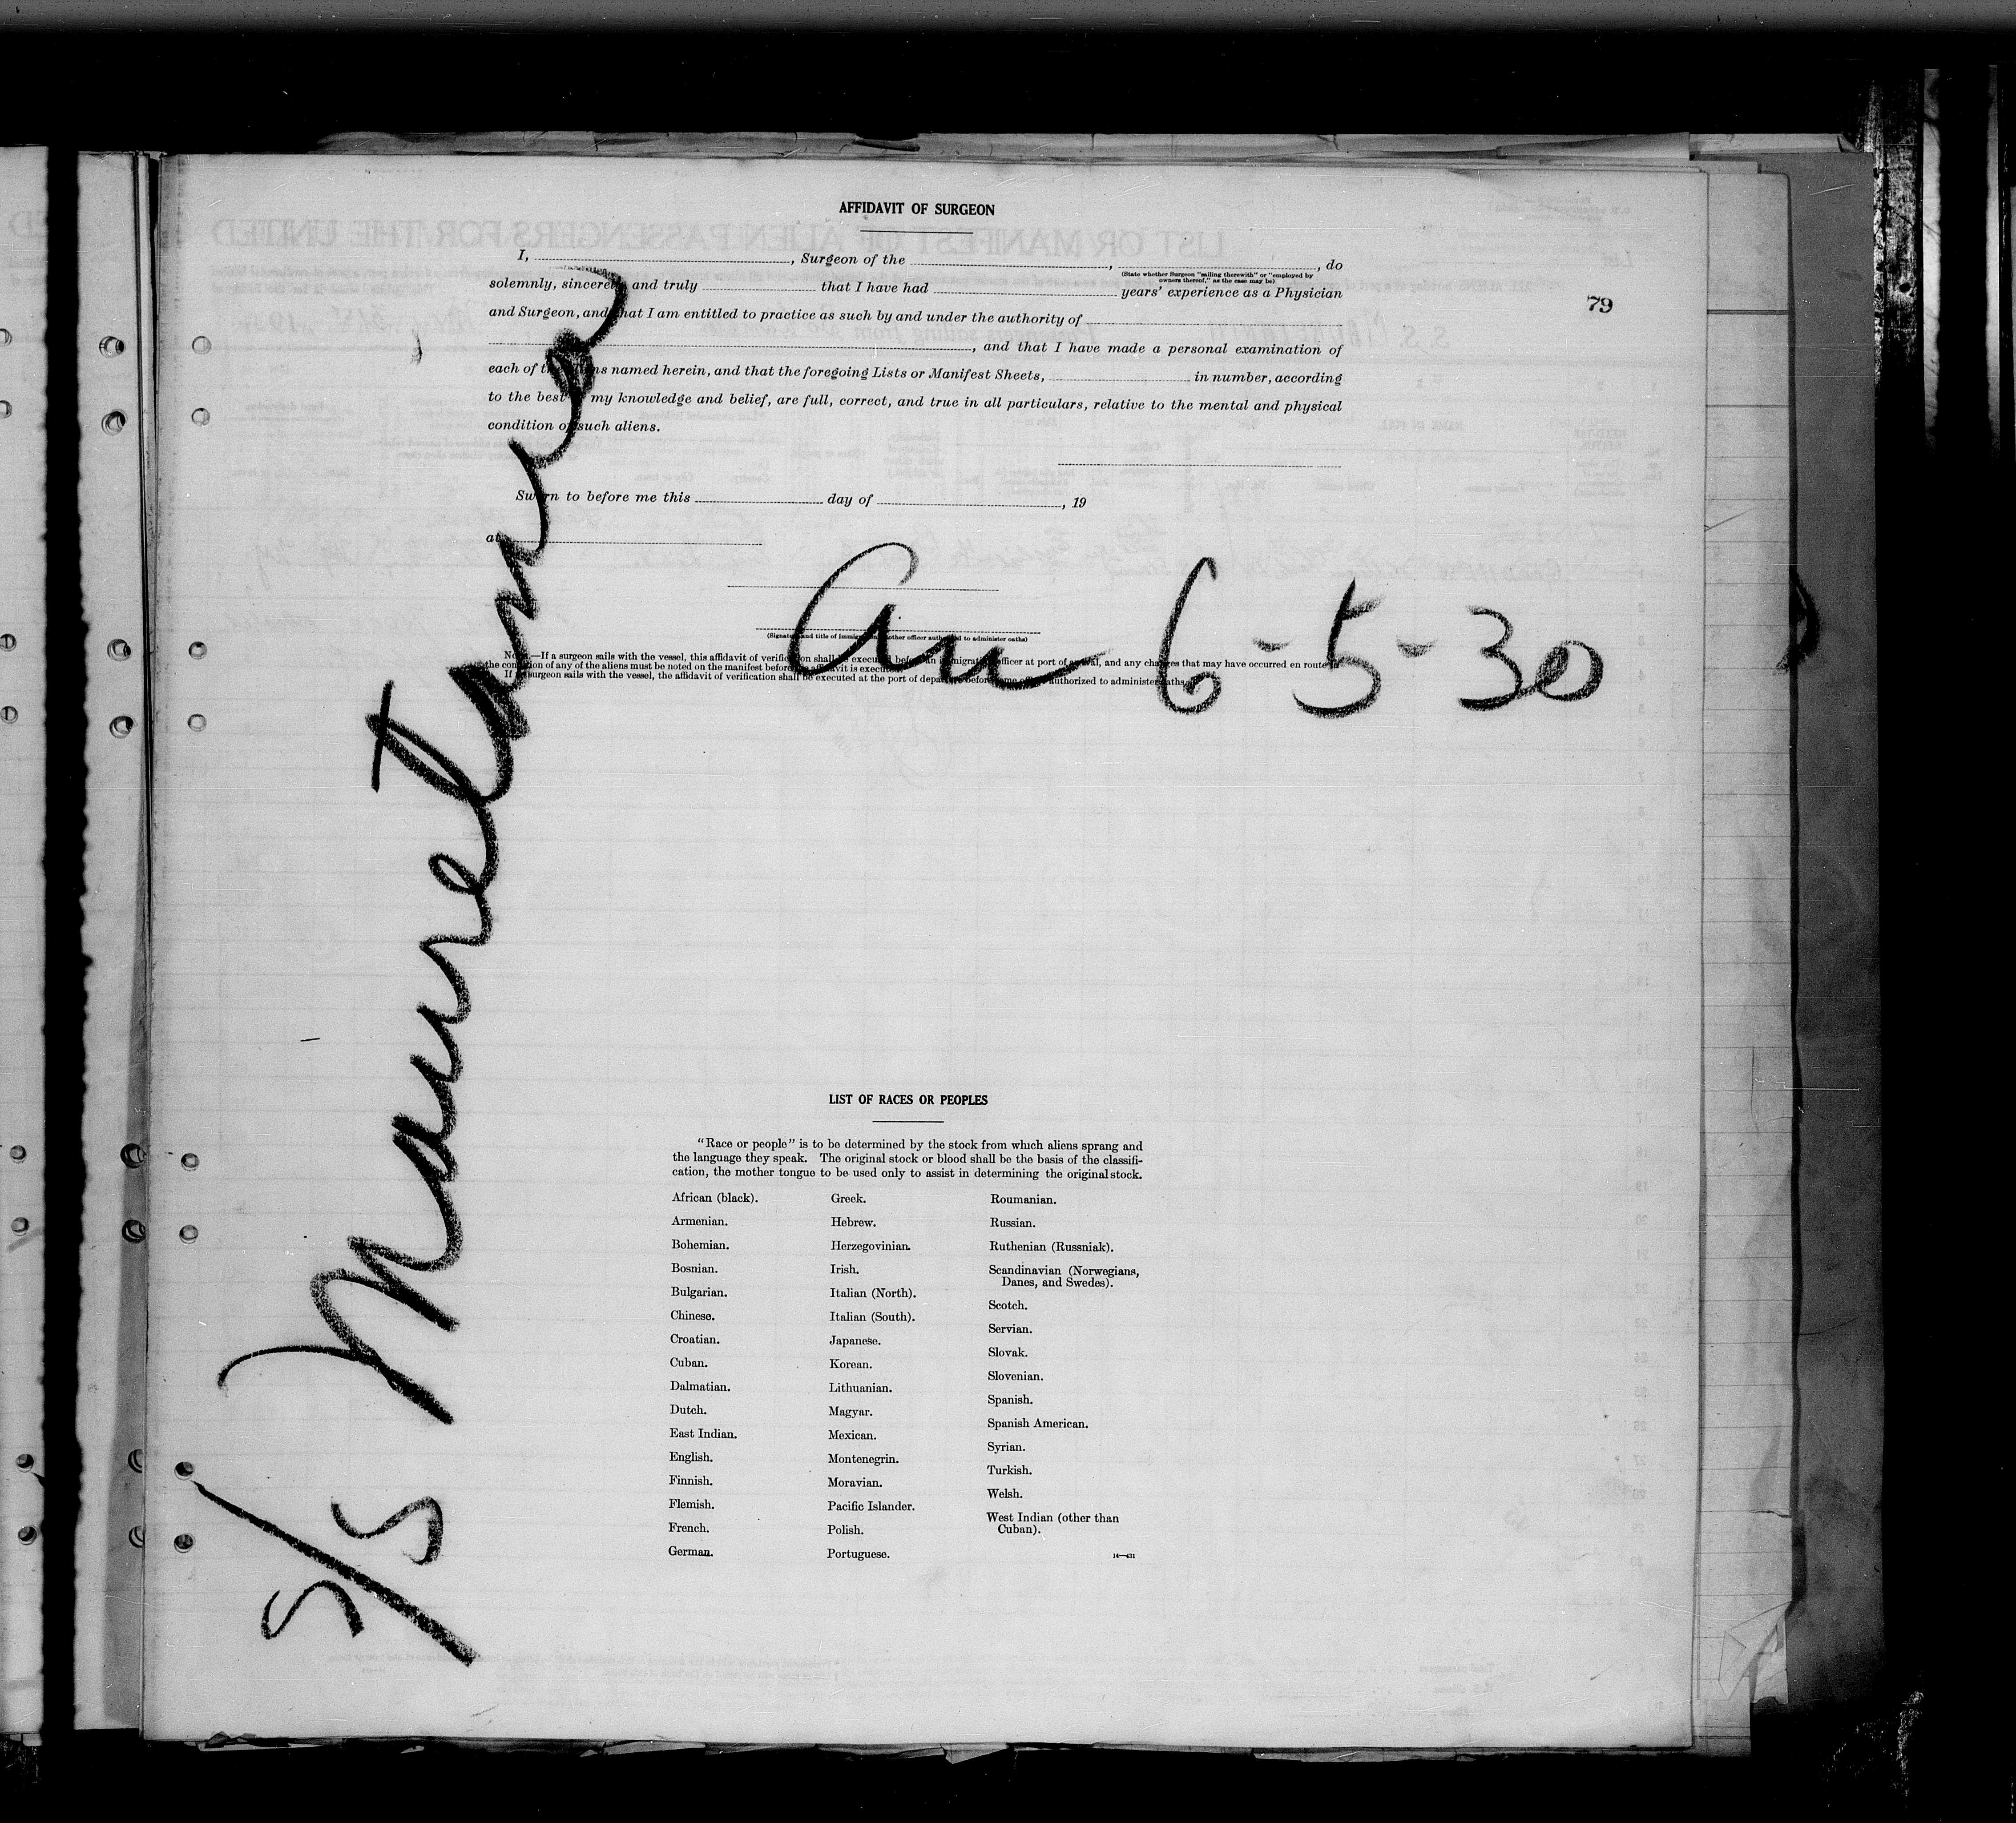 AFFIDAVIT OF SURGEON
I, , Surgeon of the , , do
(State whether Surgeon "sailing therewith" or "employed by
owners thereof," as the case may be)
solemnly, sincerely, and truly that I have had years' experience as a Physician
79
and Surgeon, and that I am entitled to practice as such by and under the authority of
, and that I have made a personal examination of
each of the aliens named herein, and that the foregoing Lists or Manifest Sheets, in number, according
to the best of my knowledge and belief, are full, correct, and true in all particulars, relative to the mental and physical
condition of such aliens.
Sworn to before me this day of , 19
at
(Signature and title of immigration or other officer authorized to administer oaths)
NOTE.—If a surgeon sails with the vessel, this affidavit of verification shall be executed before an immigration officer at port of arrival, and any changes that may have occurred en route in
the condition of any of the aliens must be noted on the manifest before the affidavit is executed.
If no surgeon sails with the vessel, the affidavit of verification shall be executed at the port of departure before some officer authorized to administer oaths.
6-5-30
S/S Mauretania
LIST OF RACES OR PEOPLES
"Race or people" is to be determined by the stock from which aliens sprang and
the language they speak. The original stock or blood shall be the basis of the classifi-
cation, the mother tongue to be used only to assist in determining the original stock.
African (black).
Armenian.
Bohemian.
Bosnian.
Bulgarian.
Chinese.
Croatian.
Cuban.
Dalmatian.
Dutch.
East Indian.
English.
Finnish.
Flemish.
French.
German.
Greek.
Hebrew.
Herzegovinian.
Irish.
Italian (North).
Italian (South).
Japanese.
Korean.
Lithuanian.
Magyar.
Mexican.
Montenegrin.
Moravian.
Pacific Islander.
Polish.
Portuguese.
Roumanian.
Russian.
Ruthenian (Russniak).
Scandinavian (Norwegians,
Danes, and Swedes).
Scotch.
Servian.
Slovak.
Slovenian.
Spanish.
Spanish American.
Syrian.
Turkish.
Welsh.
West Indian (other than
Cuban).